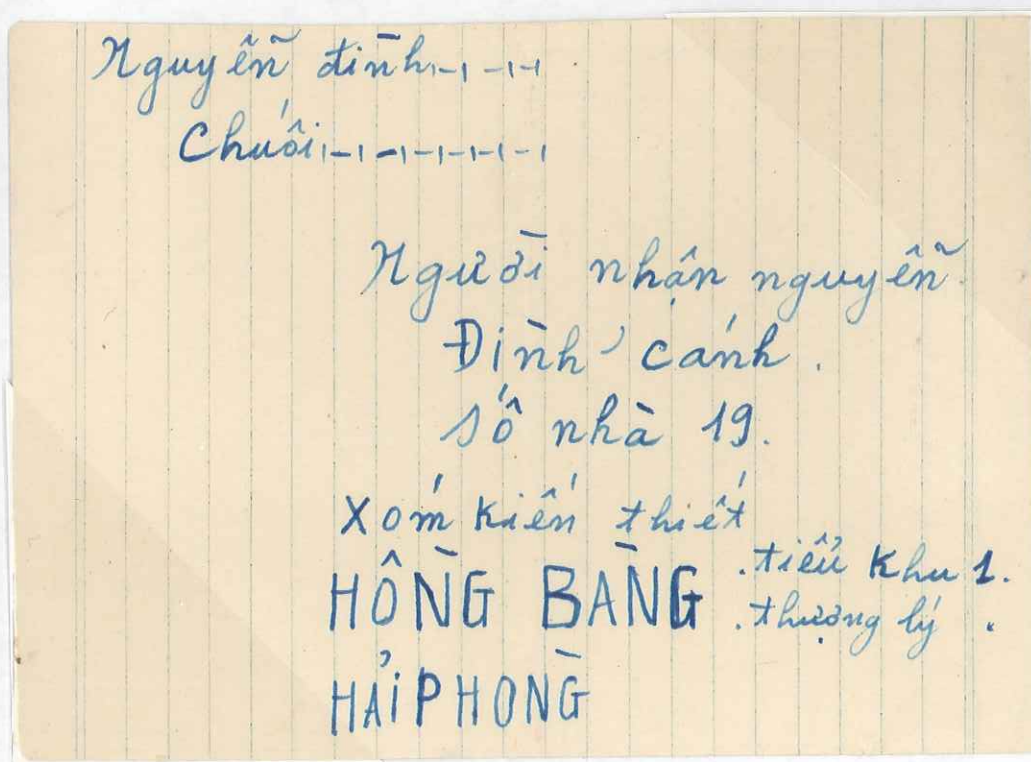 Nguyễn đình
Chuối
Người nhận nguyễn
Đình cánh.
số nhà 19.
Xóm Kiến thiết
HỒNG BÀNG .tiểu Khu 1.
.thượng lý.
HẢI PHÒNG